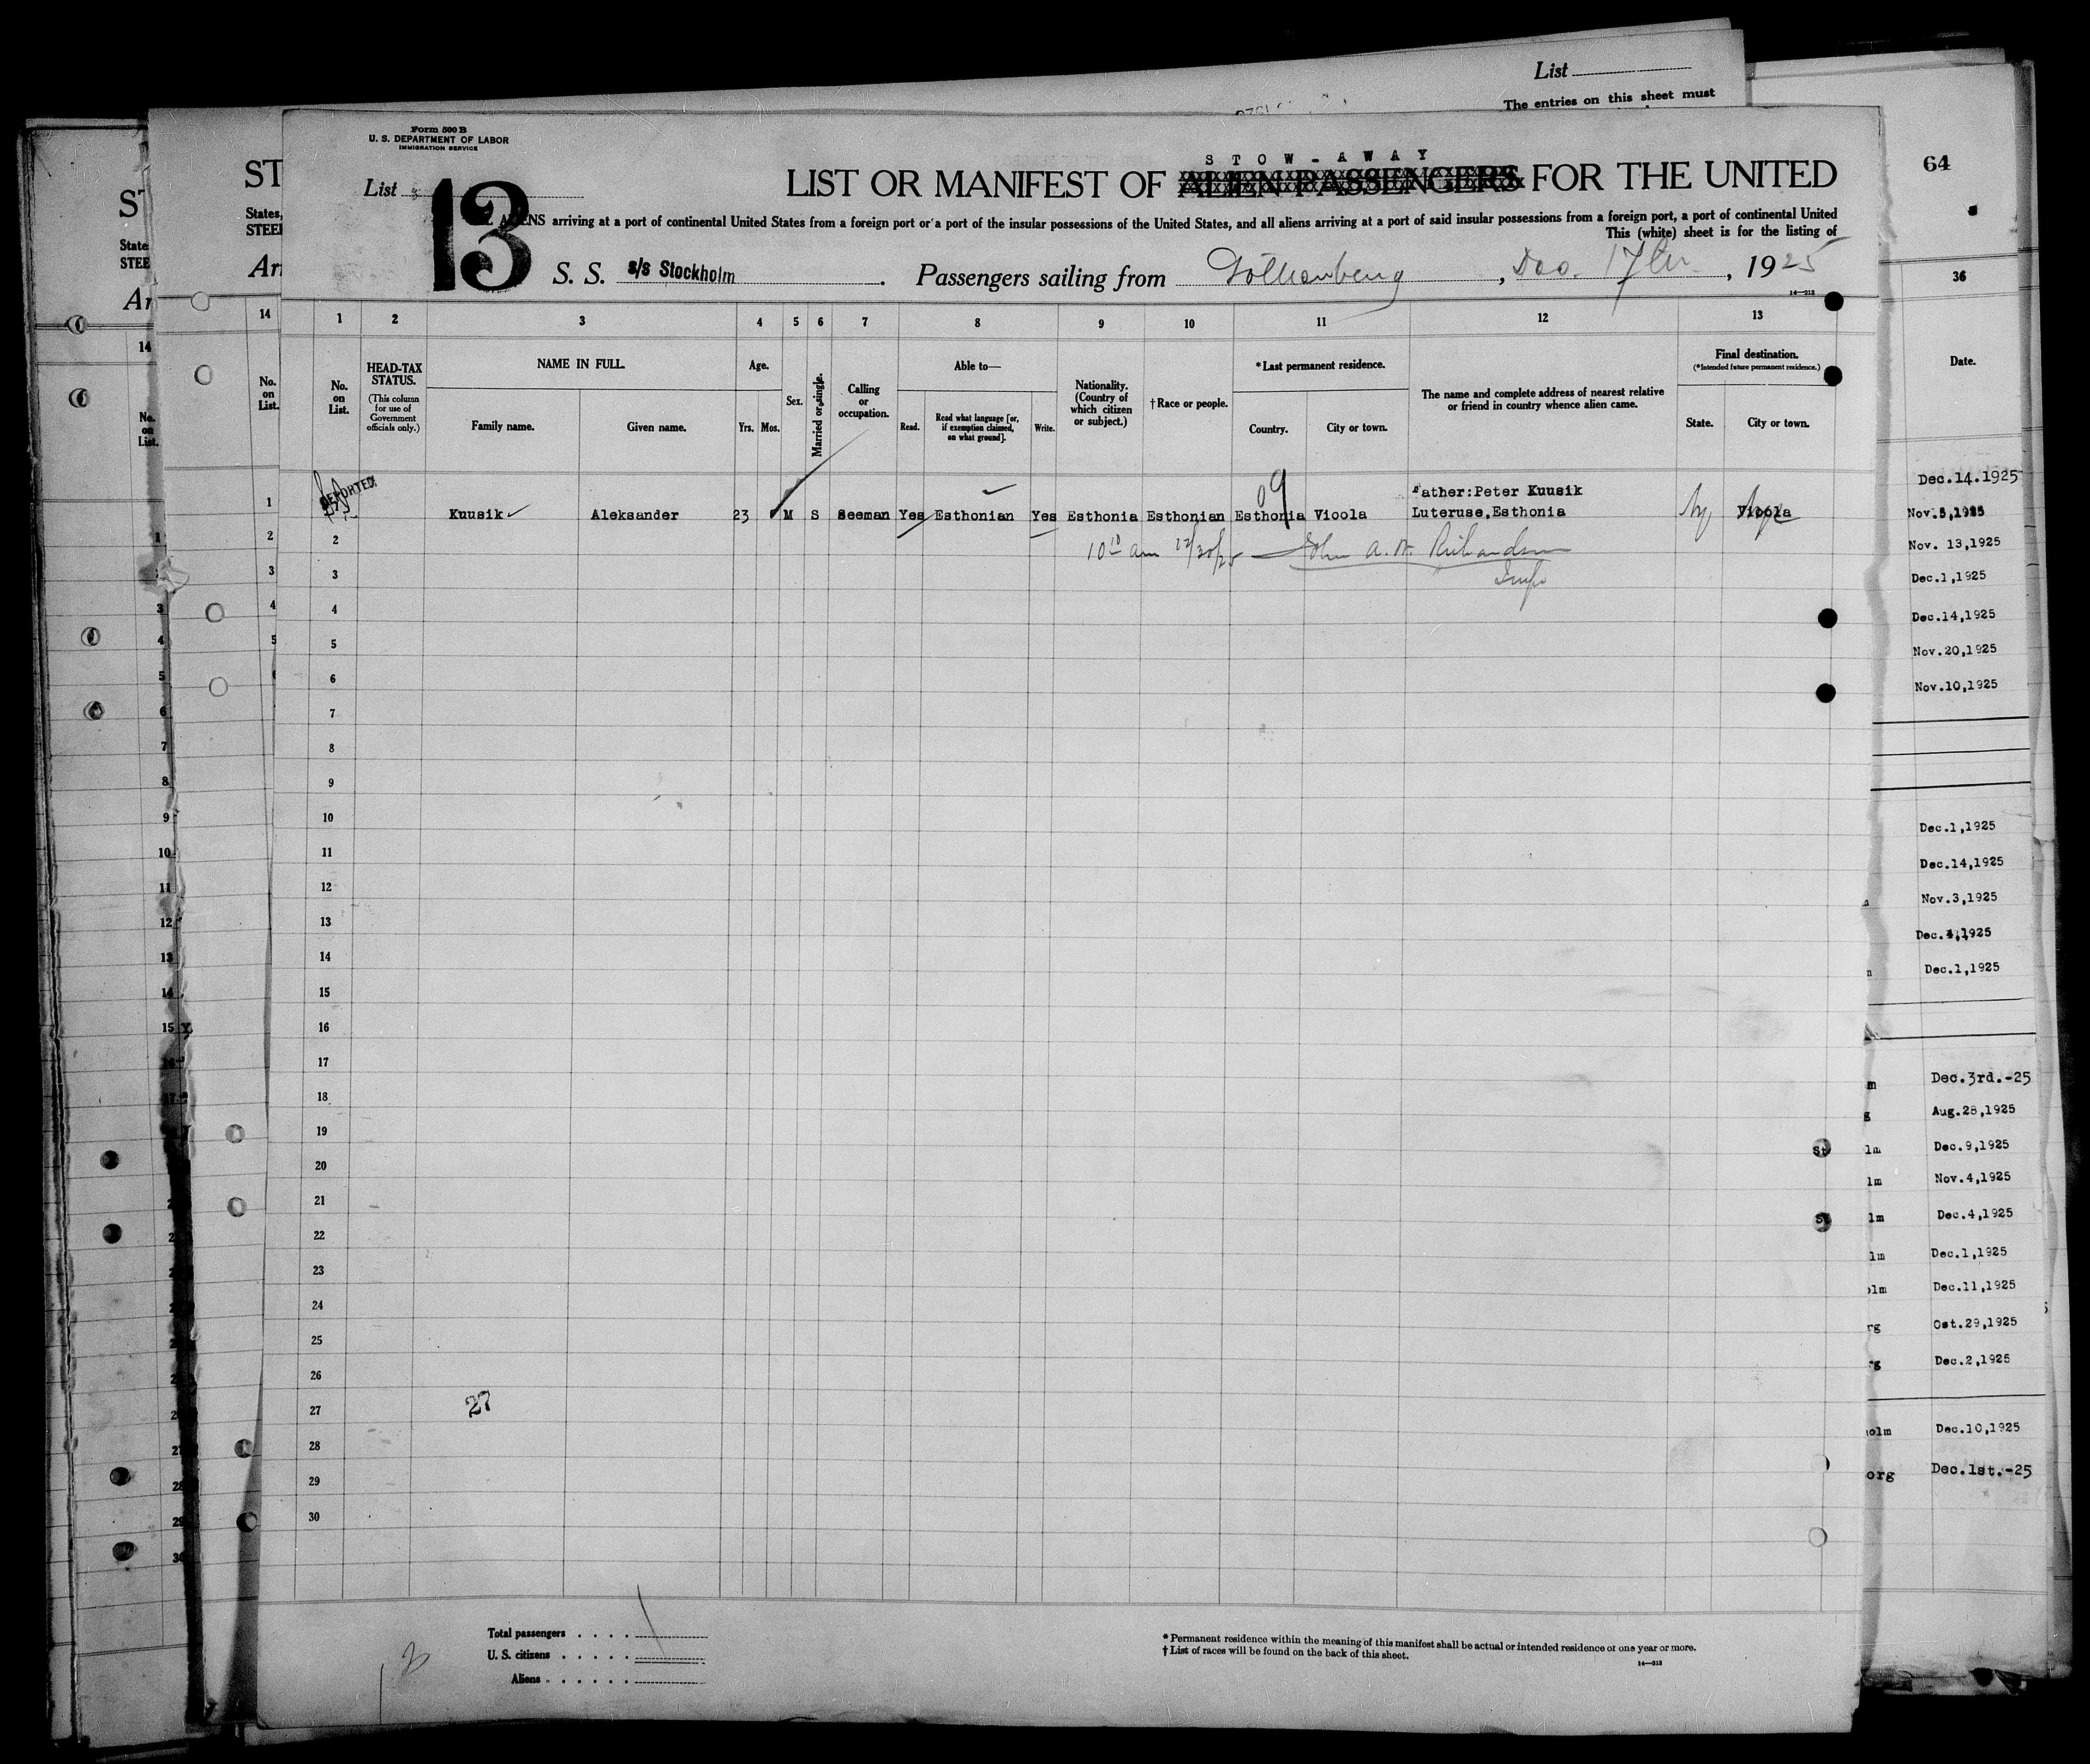 List
The entries on this sheet must
Form 500 B
U. S. DEPARTMENT OF LABOR
IMMIGRATION SERVICE
64
STOW-AWAY
List 13
LIST OR MANIFEST OF ALIEN PASSENGERS FOR THE UNITED
ALIENS arriving at a port of continental United States from a foreign port or a port of the insular possessions of the United States, and all aliens arriving at a port of said insular possessions from a foreign port, a port of continental United
This (white) sheet is for the listing of
S. S. s/s Stockholm. Passengers sailing from Göthenberg, Dec. 17th, 1925
14—213
1 2 3 4 5 6 7 8 9 10 11 12 13
HEAD-TAX STATUS.
(This column for use of Government officials only.)
No. on List.
NAME IN FULL.
Family name. Given name.
Age.
Yrs. Mos.
Sex.
Married or single.
Calling or occupation.
Able to—
Read. Read what language [or, if exemption claimed, on what ground]. Write.
Nationality. (Country of which citizen or subject.)
†Race or people.
*Last permanent residence.
Country. City or town.
The name and complete address of nearest relative or friend in country whence alien came.
Final destination.
(*Intended future permanent residence.)
State. City or town.
DEPORTED
09
Father:Peter Kuusik
1 Kuusik Aleksander 23 M S Seeman Yes Esthonian Yes Esthonia Esthonian Esthonia Vioola Luteruse,Esthonia Ny Vioola
2 10 10 am 12/30/25 John A. W. Richardson
3 Insp
4
5
6
7
8
9
10
11
12
13
14
15
16
17
18
19
20
21
22
23
24
25
26
27
27
28
29
30
Total passengers
U. S. citizens
Aliens
* Permanent residence within the meaning of this manifest shall be actual or intended residence of one year or more.
† List of races will be found on the back of this sheet.
14—213
36
Date.
Dec.14.1925
Nov.5,1925
Nov. 13,1925
Dec.1,1925
Dec.14,1925
Nov.20,1925
Nov.10,1925
Dec.1,1925
Dec.14,1925
Nov.3,1925
Dec.4,1925
Dec.1,1925
Dec.3rd.-25
Aug.28,1925
Dec.9,1925
Nov.4,1925
Dec.4,1925
Dec.1,1925
Dec.11,1925
Ost.29,1925
Dec.2,1925
Dec.10,1925
Dec.1st.-25